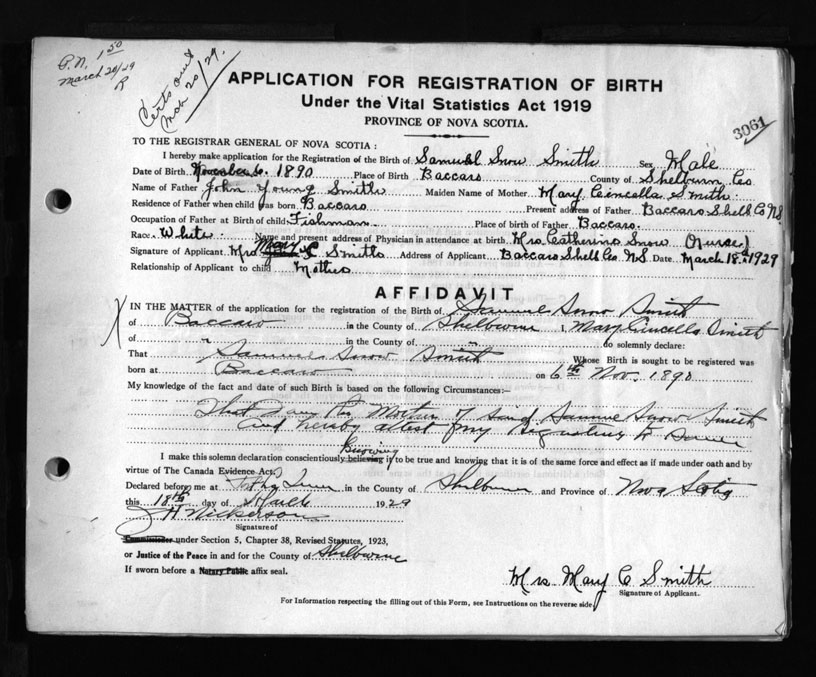 P.N. 1 50
March 20/29
R
Certs out
Mch 20/29.
APPLICATION FOR REGISTRATION OF BIRTH
Under the Vital Statistics Act 1919
PROVINCE OF NOVA SCOTIA.
3061
TO THE REGISTRAR GENERAL OF NOVA SCOTIA :
I hereby make application for the Registration of the Birth of Samuel Snow Smith Sex Male
Date of Birth November 6. 1890 Place of Birth Baccaro County of Shelburn Co
Name of Father John Young Smith Maiden Name of Mother Mary Cincella Smith
Residence of Father when child was born Baccaro Present address of Father Baccaro Shelb Co NS
Occupation of Father at Birth of child Fishman Place of birth of Father Baccaro.
Race White Name and present address of Physician in attendance at birth Mrs Catherine Snow (Nurse)
Signature of Applicant Mrs Mary C Smith Address of Applicant Baccaro Shelb Co N.S Date March 18th 1929
Relationship of Applicant to child Mother
AFFIDAVIT
IN THE MATTER of the application for the registration of the Birth of Samuel Snow Smith
of Baccaro in the County of Shelburne I, Mary Cincella Smith
of " in the County of " do solemnly declare:
That Samuel Snow Smith Whose Birth is sought to be registered was
born at Baccaro on 6th Nov. 1890
My knowledge of the fact and date of such Birth is based on the following Circumstances:—
That I am the Mother of said Samuel Snow Smith
and hereby attest my to Same
I make this solemn declaration conscientiously believing it to be true and knowing that it is of the same force and effect as if made under oath and by
virtue of The Canada Evidence Act.
Declared before me at in the County of Shelburne and Province of Nova Scotia
this 18th day of March 1929
J H Nickerson
Signature of
Commissioner under Section 5, Chapter 38, Revised Statutes, 1923,
or Justice of the Peace in and for the County of Shelburne
If sworn before a Notary Public affix seal.
Mrs Mary C Smith
Signature of Applicant.
For Information respecting the filling out of this Form, see Instructions on the reverse side